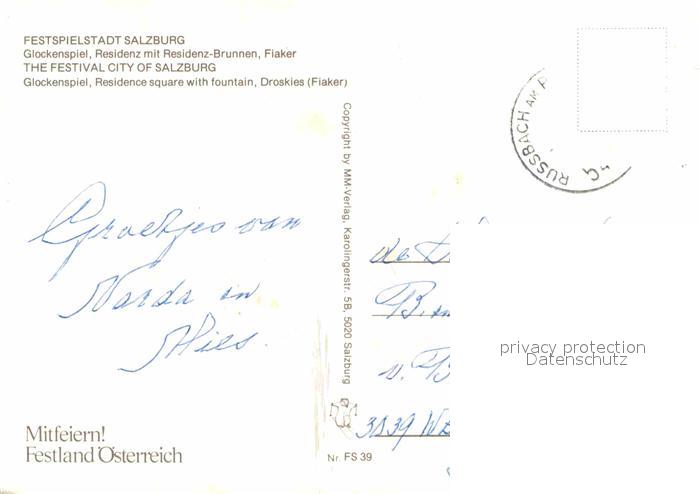 FESTSPIELSTADT SALZBURG
Glockenspiel, Residenz mit Residenz-Brunnen, Fiaker
THE FESTIVAL CITY OF SALZBURG
Glockenspiel, Residence square with fountain, Droskies (Fiaker)
Copyright by MM-Verlag, Karolingerstr. 5B, 5020 Salzburg
RUSSBACH AM P
Groetjes van
Narda en
Mies.
de
B. en
v. B
3839
privacy protection
Datenschutz
Mitfeiern!
Festland Österreich
Nr. FS 39